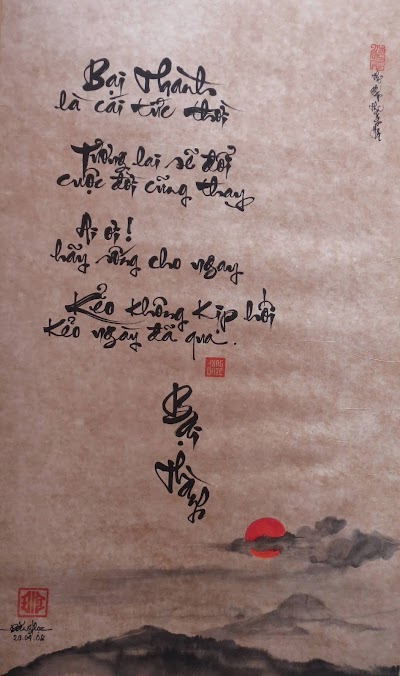 Bại Thành
là cái tức thời
Tương lai sẽ đổi
cuộc đời cũng thay
Ai ơi!
hãy sống cho ngay
Kẻo không kịp hối
kẻo ngày đã qua.
Bại
Thành